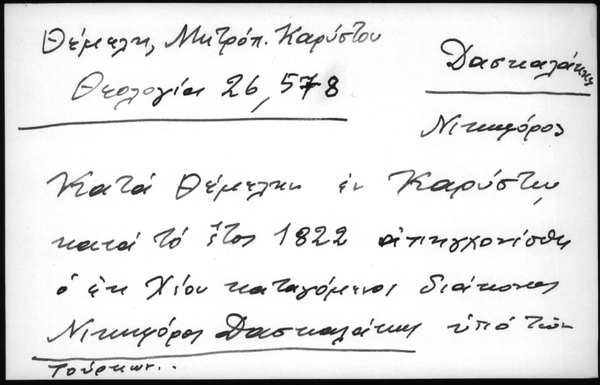 Θέμελη, Μητρόπ. Καρύστου
Θεολογία 26, 578
Δασκαλάκης
Νικηφόρος
Κατά Θέμελην ἐν Καρύστῳ,
κατά τό ἔτος 1822 ἀπηγχονίσθη
ὁ ἐκ Χίου καταγόμενος διάκονος
Νικηφόρος Δασκαλάκης ὑπό τῶν
Τούρκων..